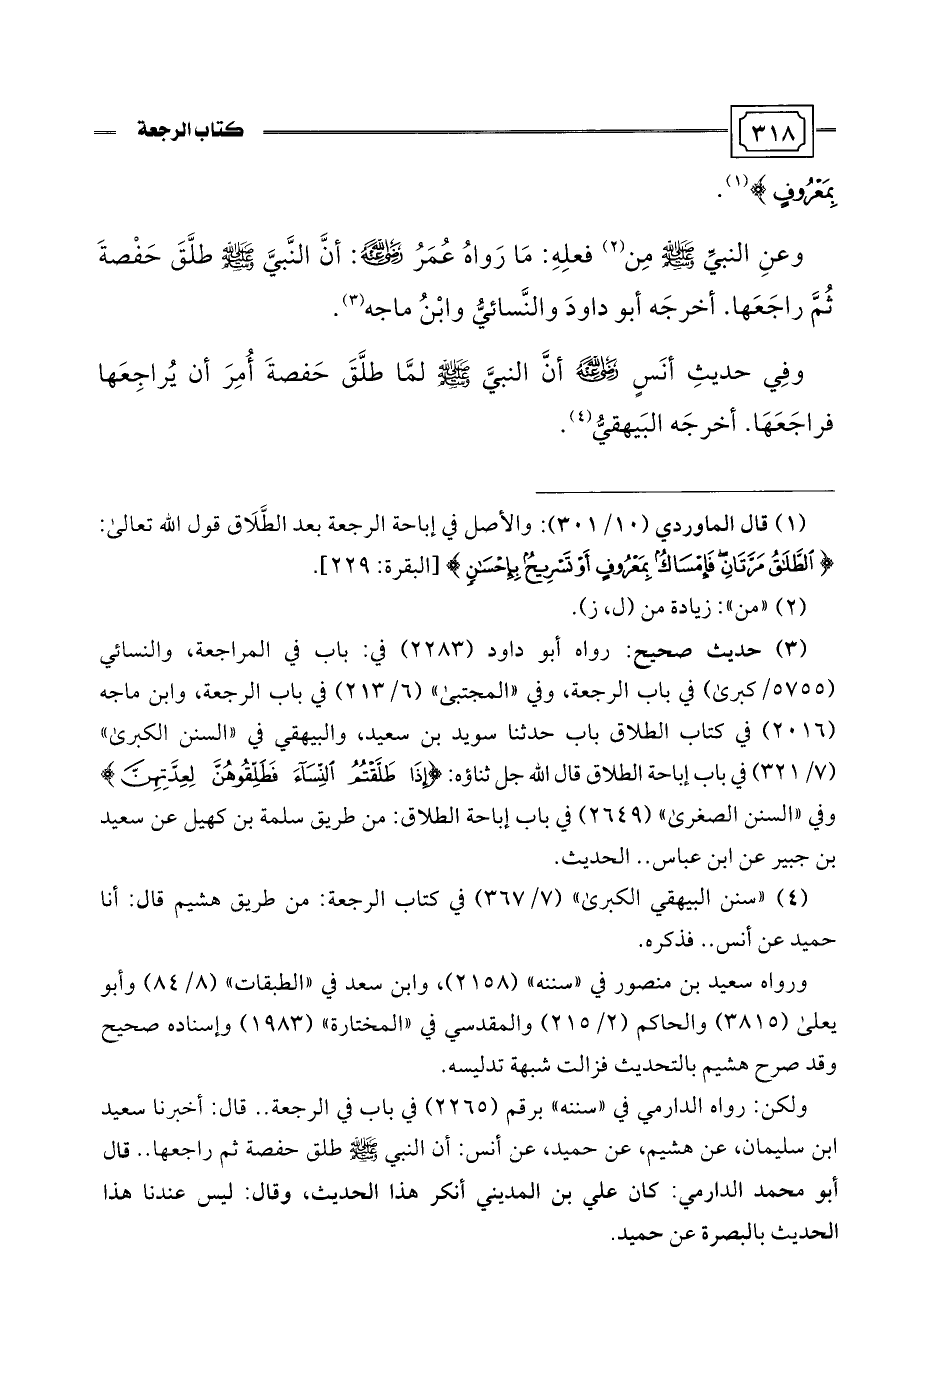 ٣١٨ كتاب الرجعة
بِمَعْرُوفٍ ﴾(١).
وعنِ النبيِّ ﷺ مِن(٢) فعلِهِ: مَا رَواهُ عُمَرُ رَضِيَ اللَّهُ عَنْهُ: أنَّ النَّبيَّ ﷺ طلَّقَ حَفْصةَ
ثُمَّ راجَعَها. أخرجَه أبو داودَ والنَّسائيُّ وابْنُ ماجه(٣).
وفِي حديثِ أنَسٍ رَضِيَ اللَّهُ عَنْهُ أنَّ النبيَّ ﷺ لمَّا طلَّقَ حَفصةَ أُمِرَ أن يُراجِعَها
فراجَعَهَا. أخرجَه البَيهقيُّ(٤).
(١) قال الماوردي (١٠/ ٣٠١): والأصل في إباحة الرجعة بعد الطَّلَاق قول الله تعالىٰ:
﴿ ٱلطَّلَٰقُ مَرَّتَانِۖ فَإِمْسَاكُۢ بِمَعْرُوفٍ أَوْ تَسْرِيحُۢ بِإِحْسَٰنٖ ﴾ [البقرة: ٢٢٩].
(٢) «من»: زيادة من (ل، ز).
(٣) حديث صحيح: رواه أبو داود (٢٢٨٣) في: باب في المراجعة، والنسائي
(٥٧٥٥/ كبرىٰ) في باب الرجعة، وفي «المجتبىٰ» (٦/ ٢١٣) في باب الرجعة، وابن ماجه
(٢٠١٦) في كتاب الطلاق باب حدثنا سويد بن سعيد، والبيهقي في «السنن الكبرىٰ»
(٧/ ٣٢١) في باب إباحة الطلاق قال الله جل ثناؤه: ﴿إِذَا طَلَّقْتُمُ ٱلنِّسَآءَ فَطَلِّقُوهُنَّ لِعِدَّتِهِنَّ ﴾
وفي «السنن الصغرىٰ» (٢٦٤٩) في باب إباحة الطلاق: من طريق سلمة بن كهيل عن سعيد
بن جبير عن ابن عباس.. الحديث.
(٤) «سنن البيهقي الكبرىٰ» (٧/ ٣٦٧) في كتاب الرجعة: من طريق هشيم قال: أنا
حميد عن أنس.. فذكره.
ورواه سعيد بن منصور في «سننه» (٢١٥٨)، وابن سعد في «الطبقات» (٨/ ٨٤) وأبو
يعلىٰ (٣٨١٥) والحاكم (٢/ ٢١٥) والمقدسي في «المختارة» (١٩٨٣) وإسناده صحيح
وقد صرح هشيم بالتحديث فزالت شبهة تدليسه.
ولكن: رواه الدارمي في «سننه» برقم (٢٢٦٥) في باب في الرجعة.. قال: أخبرنا سعيد
ابن سليمان، عن هشيم، عن حميد، عن أنس: أن النبي ﷺ طلق حفصة ثم راجعها.. قال
أبو محمد الدارمي: كان علي بن المديني أنكر هذا الحديث، وقال: ليس عندنا هذا
الحديث بالبصرة عن حميد.